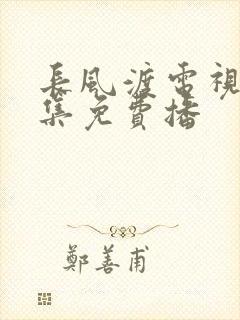 長風渡電視
集免費播
鄭善甫